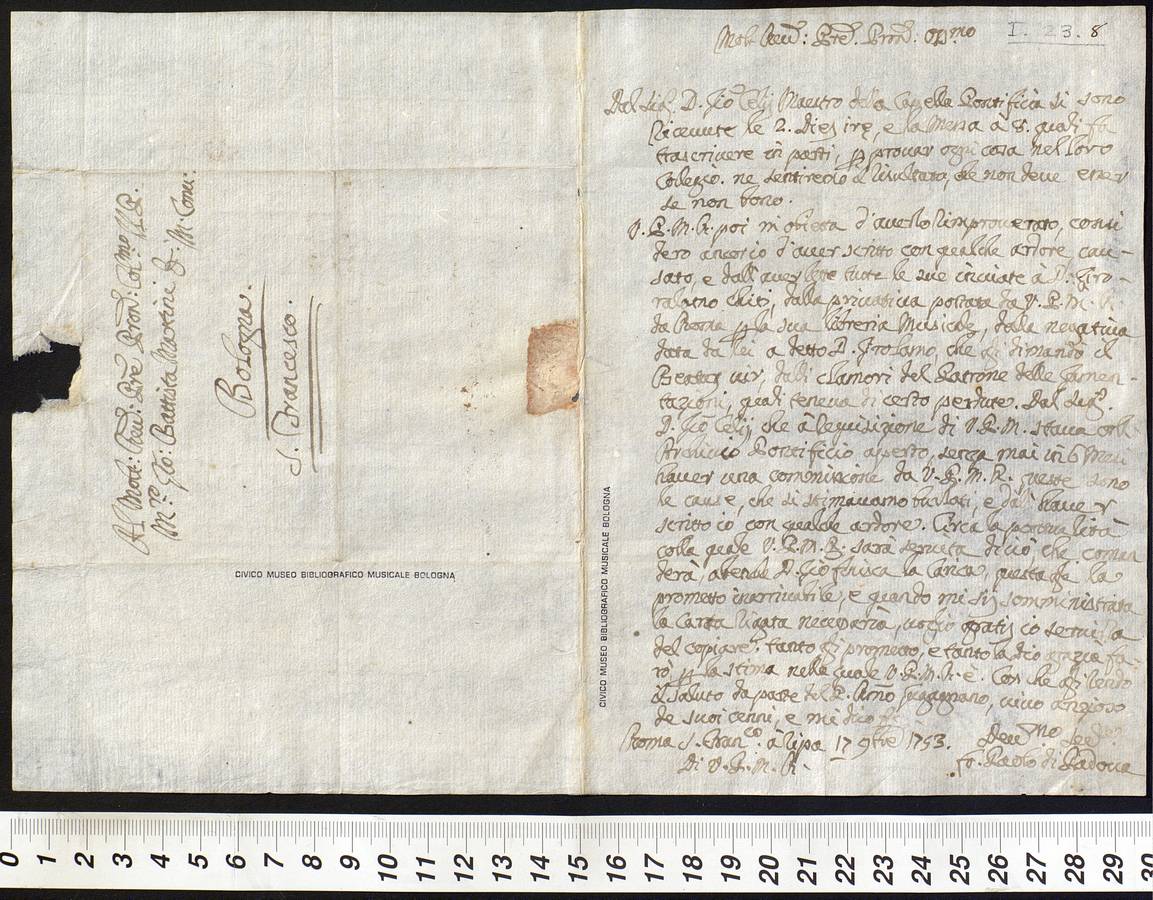 Al Molt: Rev: Pre Pron: Col:mo il P.
M:ro Gio: Battista Martini de M: Con:
Bologna.
S. Francesco.
CIVICO MUSEO BIBLIOGRAFICO MUSICALE BOLOGNA
CIVICO MUSEO BIBLIOGRAFICO MUSICALE BOLOGNA
I. 23. 8
Molt Rev: Pre. Pron. Opmo
Dal Sig. D. Gio Celij Maestro della Cappella Pontificia si sono
ricevute le 2. Dies ire, e la Messa a 8. quali fa
trascrivere in parti, p provar ogni cosa nel loro
Colegio. ne sentiremo il risultato, che non deve esser
se non bono.
V. P. M. R. poi m'obietta d'averlo rimproverato, consi
dero ancor io d'aver scritto con qualche ardore, cau-
sato, e dall'aver lette tutte le sue inviate à D. Giro-
lamo Chiti, dalla privativa portata da V. P. M. R.
da Roma p la sua libreria Musicale, dalla negativa
data da lei a detto D. Girolamo, che gli dimandò il
Beatus vir, dalli clamori del Patrone delle Lamen-
tazioni, quali teneva di certo perdute. Dal Sig.
D. Gio Celij, che à requisizione di V. P. M. stava coll'
Archivio Pontificio aperto, senza mai in 6 Mesi
haver una commissione da V. P. M. R. queste sono
le cause, che si stimavamo burlati, e da haver
scritto io con qualche ardore. Circa la pontualità
colla quale V. P. M. R. sarà servita di ciò che coman
derà, abenche D. Gio finisca la Carica, questa gli la
prometto inarrivabile, e quando mi sij somministrata
la Carta rigata necessaria, voglio gratis io servirla
del copiare. tanto gli prometto, e tanto la dio grazia fa-
rò, p la stima nella quale V. P. M. R. è. Con che gli rendo
il saluto da parte del P. Pmo Guadagnano, vivo ansioso
de suoi cenni, e mi dico
Roma S. Franco. à ripa 17 9bre 1753.
Di V. P. M. R.
Devmo Serv.
fr. Paolo di Padova
0 1 2 3 4 5 6 7 8 9 10 11 12 13 14 15 16 17 18 19 20 21 22 23 24 25 26 27 28 29 30